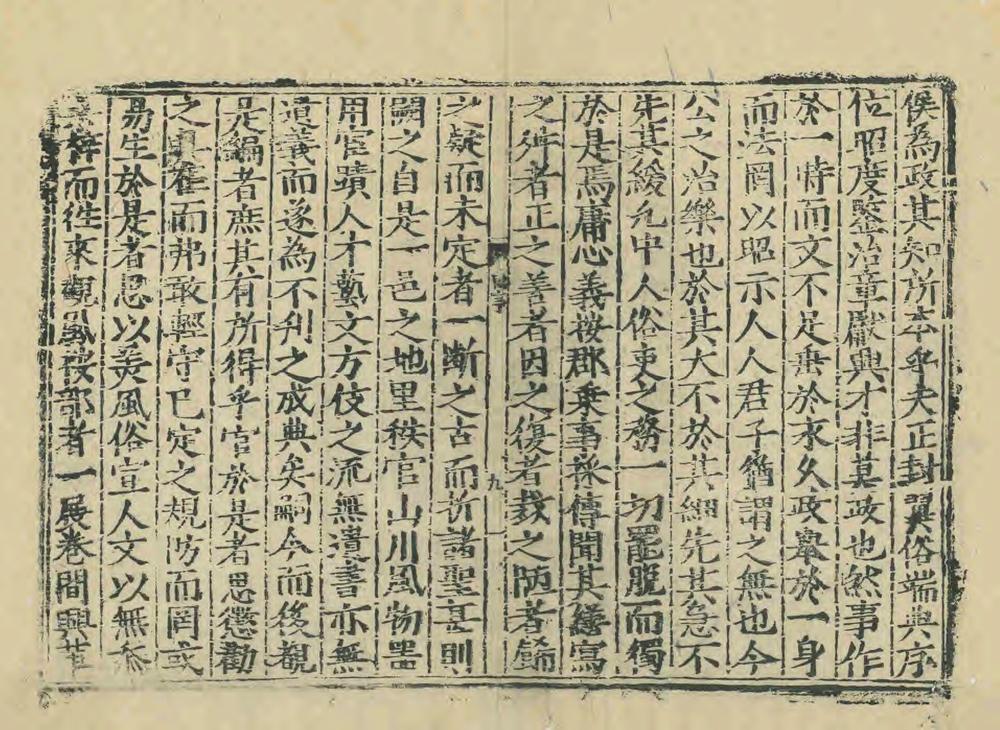 侯為政其知所本乎夫正封翼俗端典序
位昭度鑒治章獻興才非莫政也然事作
於一時而文不足垂於永久政舉於一身
而法罔以昭示人人君子猶謂之無也今
公之治樂也於其大不於其細先其急不
先其緩允中人俗吏之務一切罷脫而獨
於是焉庸心義按郡乘事採傳聞其繆寫
之殊者正之善者因之復者裁之陋者
之疑而未定者一斷之古而折諸聖是則
闕之自是一邑之地里秩官山川風物器
用宦蹟人才藝文方伎之流無遺書亦無
遺義而遂為不刋之成典矣嗣今而後觀
是編者庶其有所得乎官於是者思懲勸
之具在而弗敢輕守已定之規防而罔或
易生於是者思以美風俗宣人文以無忝
而徃來觀風按部者一展卷間興革
九